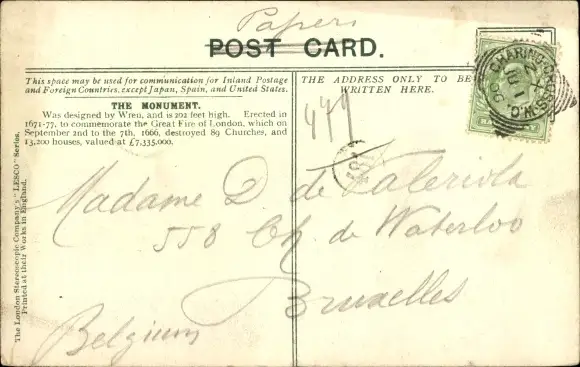 Papers
POST CARD.
This space may be used for communication for Inland Postage
and Foreign Countries, except Japan, Spain, and United States.
THE ADDRESS ONLY TO BE
WRITTEN HERE.
THE MONUMENT.
Was designed by Wren, and is 202 feet high. Erected in
1671-77, to commemorate the Great Fire of London, which on
September 2nd to the 7th, 1666, destroyed 89 Churches, and
13,200 houses, valued at £7,335,000.
The London Stereoscopic Company's "LESCO" Series.
Printed at their Works in England.
CHARING CROSS W.C.
479
Madame D. de Valeriola
558 Ch. de Waterloo
Bruxelles
Belgium